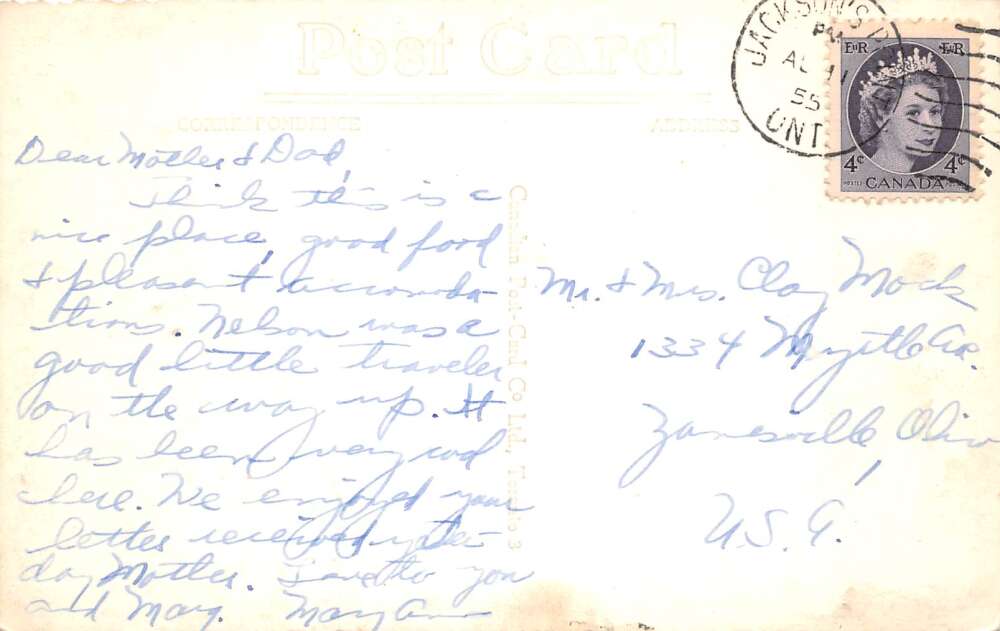 Post Card
CORRESPONDENCE
ADDRESS
JACKSON'S
PM
AU 11
55
ONT
EIIR EIIR
4¢ 4¢
POSTES CANADA POSTAGE
Dear Mother & Dad,
Think this is a
nice place, good food
& pleasant accomoda-
tions. Nelson was a
good little traveler
on the way up. It
has been very cool
here. We enjoyed your
letter received yester-
day Mother. Love to you
and Mary. Mary Ann
Canadian Post Card Co Ltd, Toronto 3
Mr. & Mrs. Clay Mock
1334 Myrtle Av.
Zanesville, Ohio
U.S.A.